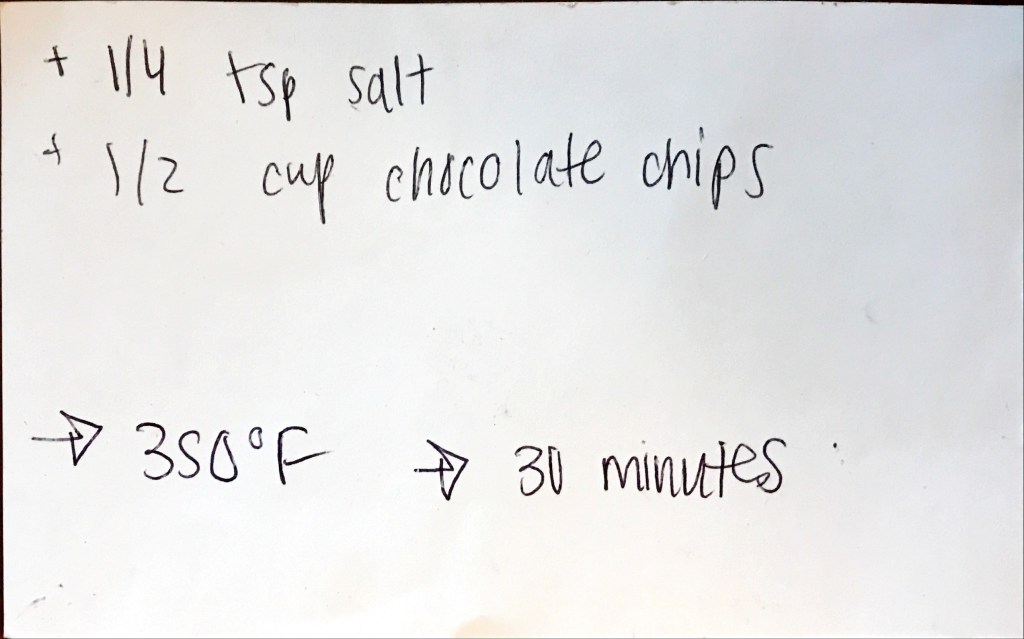 + 1/4 tsp salt
+ 1/2 cup chocolate chips
→ 350°F → 30 minutes